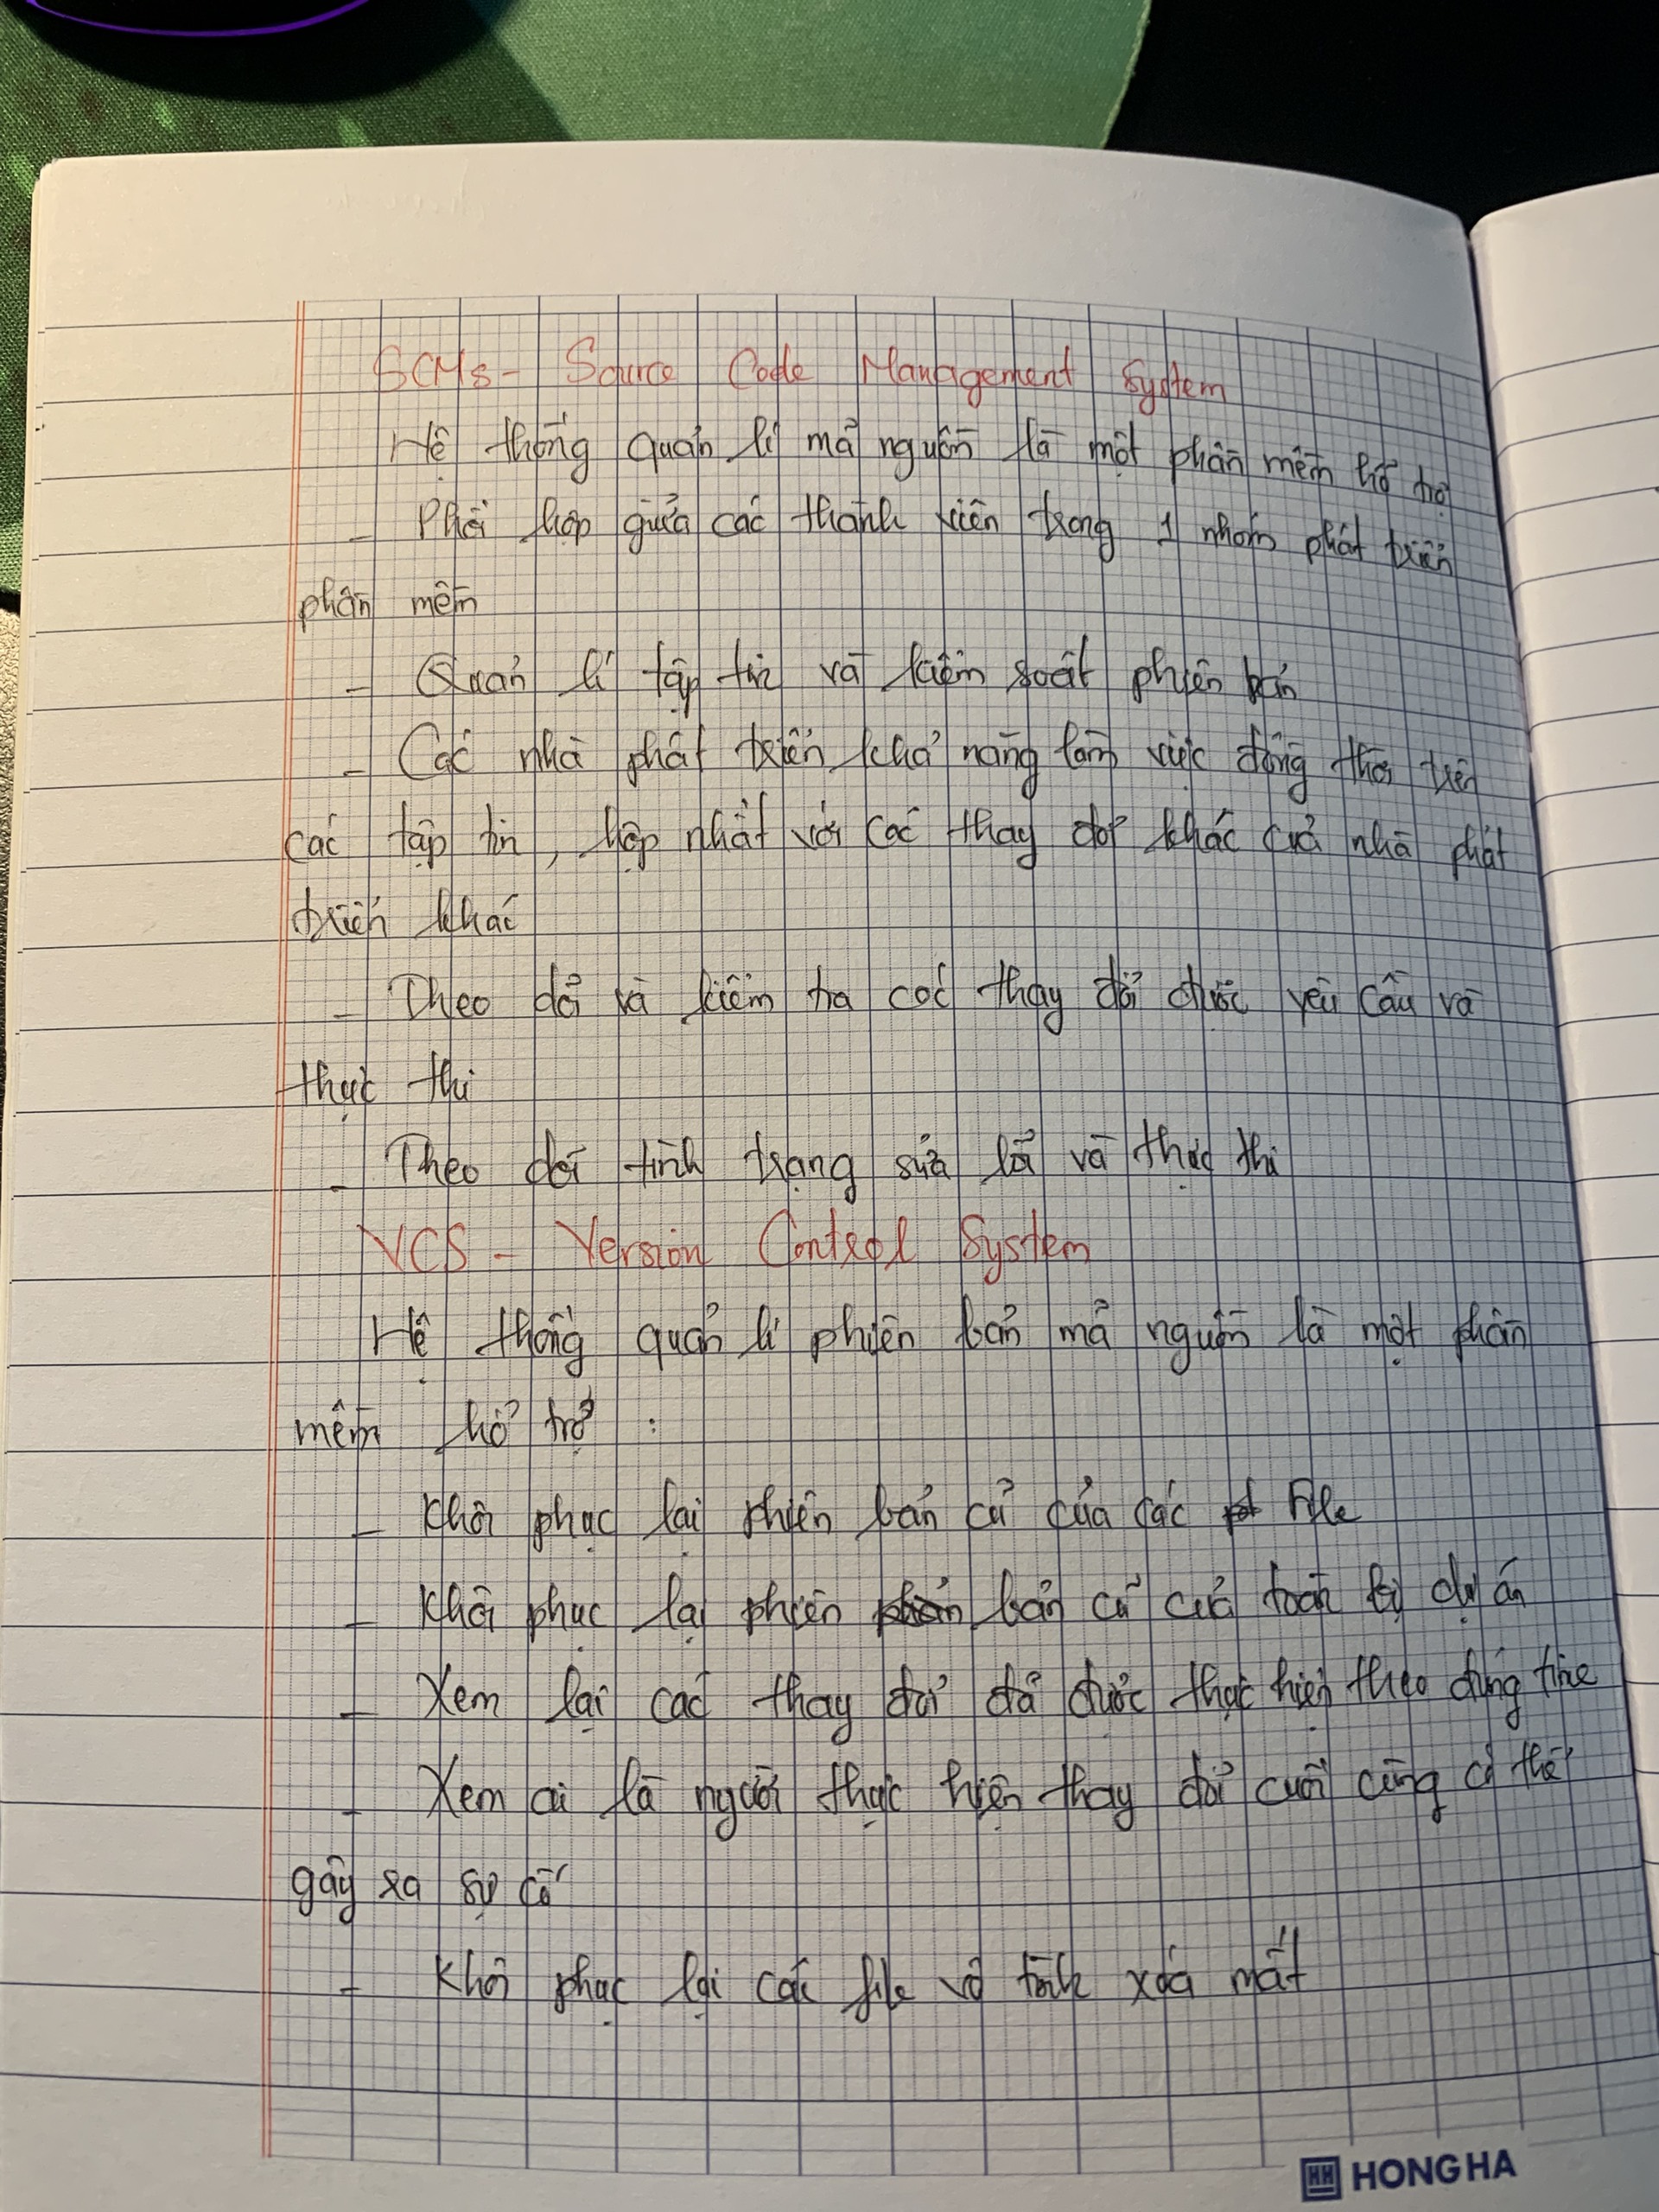 SCMs - Source Code Management System
Hệ thống quản lí mã nguồn là một phần mềm hỗ trợ
- Phối hợp giữa các thành viên trong 1 nhóm phát triển
phần mềm
- Quản lí tập tin và kiểm soát phiên bản
- Các nhà phát triển khả năng làm việc đồng thời trên
các tập tin, hợp nhất với các thay đổi khác của nhà phát
triển khác
- Theo dõi và kiểm tra các thay đổi được yêu cầu và
thực thi
- Theo dõi tình trạng sửa lỗi và thực thi
VCS - Version Control System
Hệ thống quản lí phiên bản mã nguồn là một phần
mềm hỗ trợ :
- Khôi phục lại phiên bản cũ của các File
- Khôi phục lại phiên bản cũ của toàn bộ dự án
- Xem lại các thay đổi đã được thực hiện theo đúng time
- Xem ai là người thực hiện thay đổi cuối cùng có thể
gây ra sự cố
- Khôi phục lại các file vô tình xóa mất
HONG HA